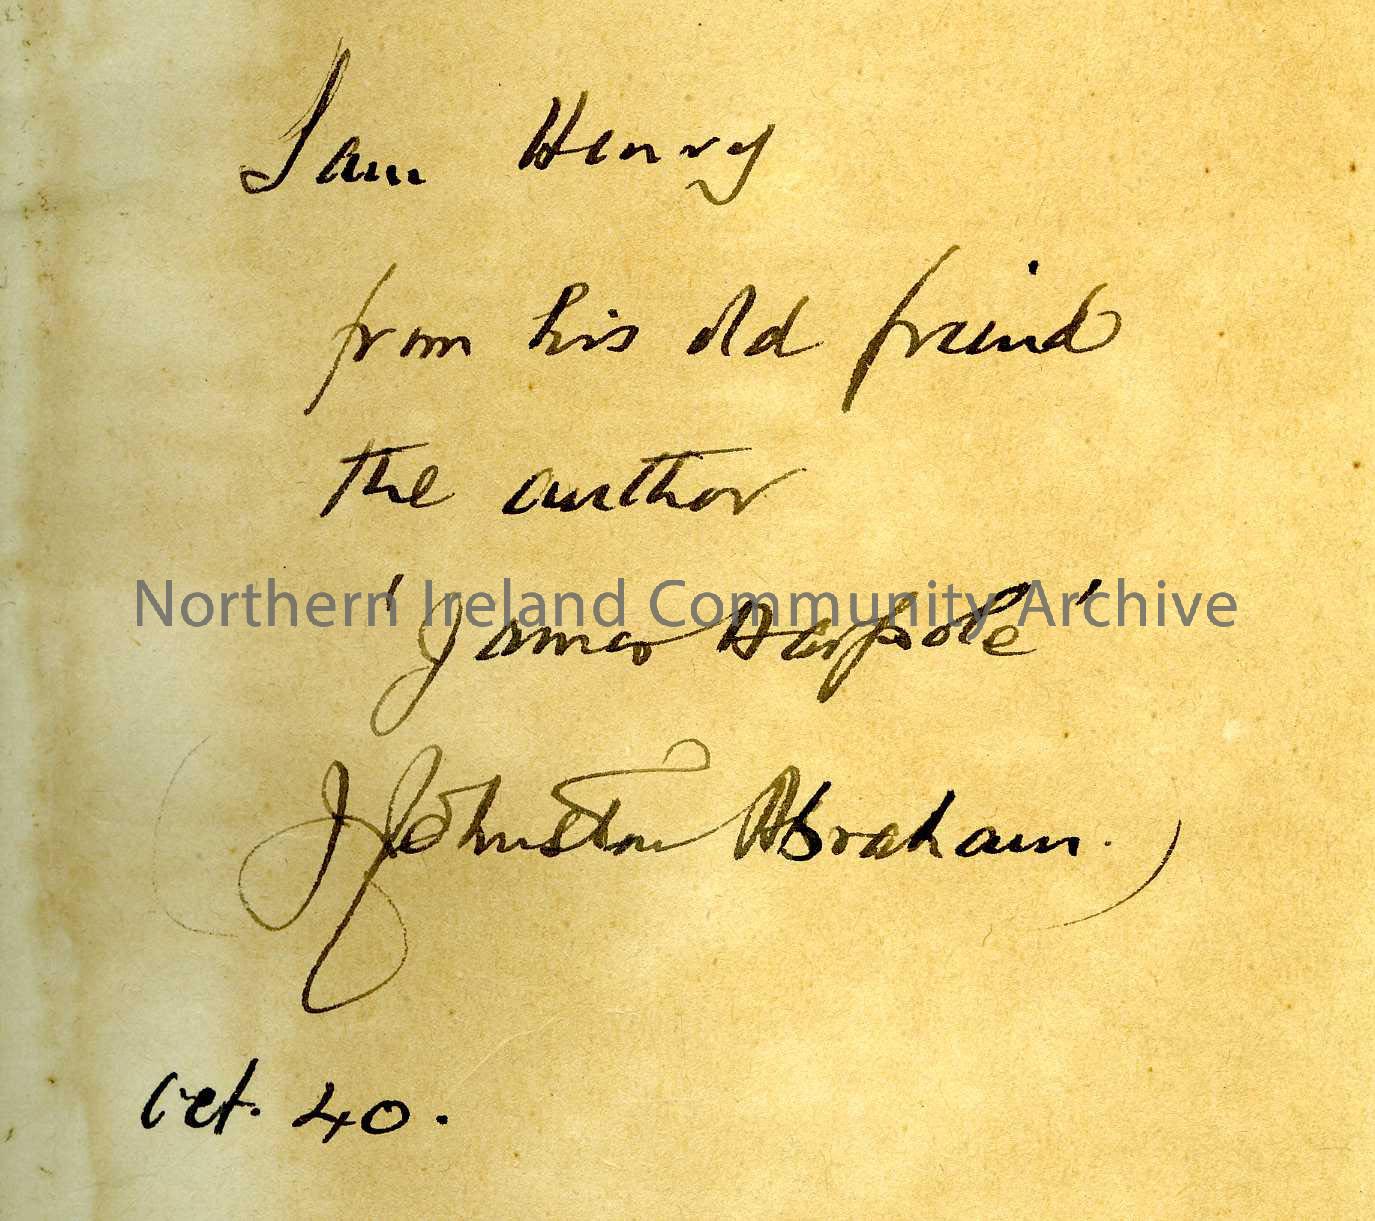 Sam Henry
from his old friend
the author
Northern Ireland Community Archive
"James Harpole"
(J Johnston Abraham.)
Oct. 40.